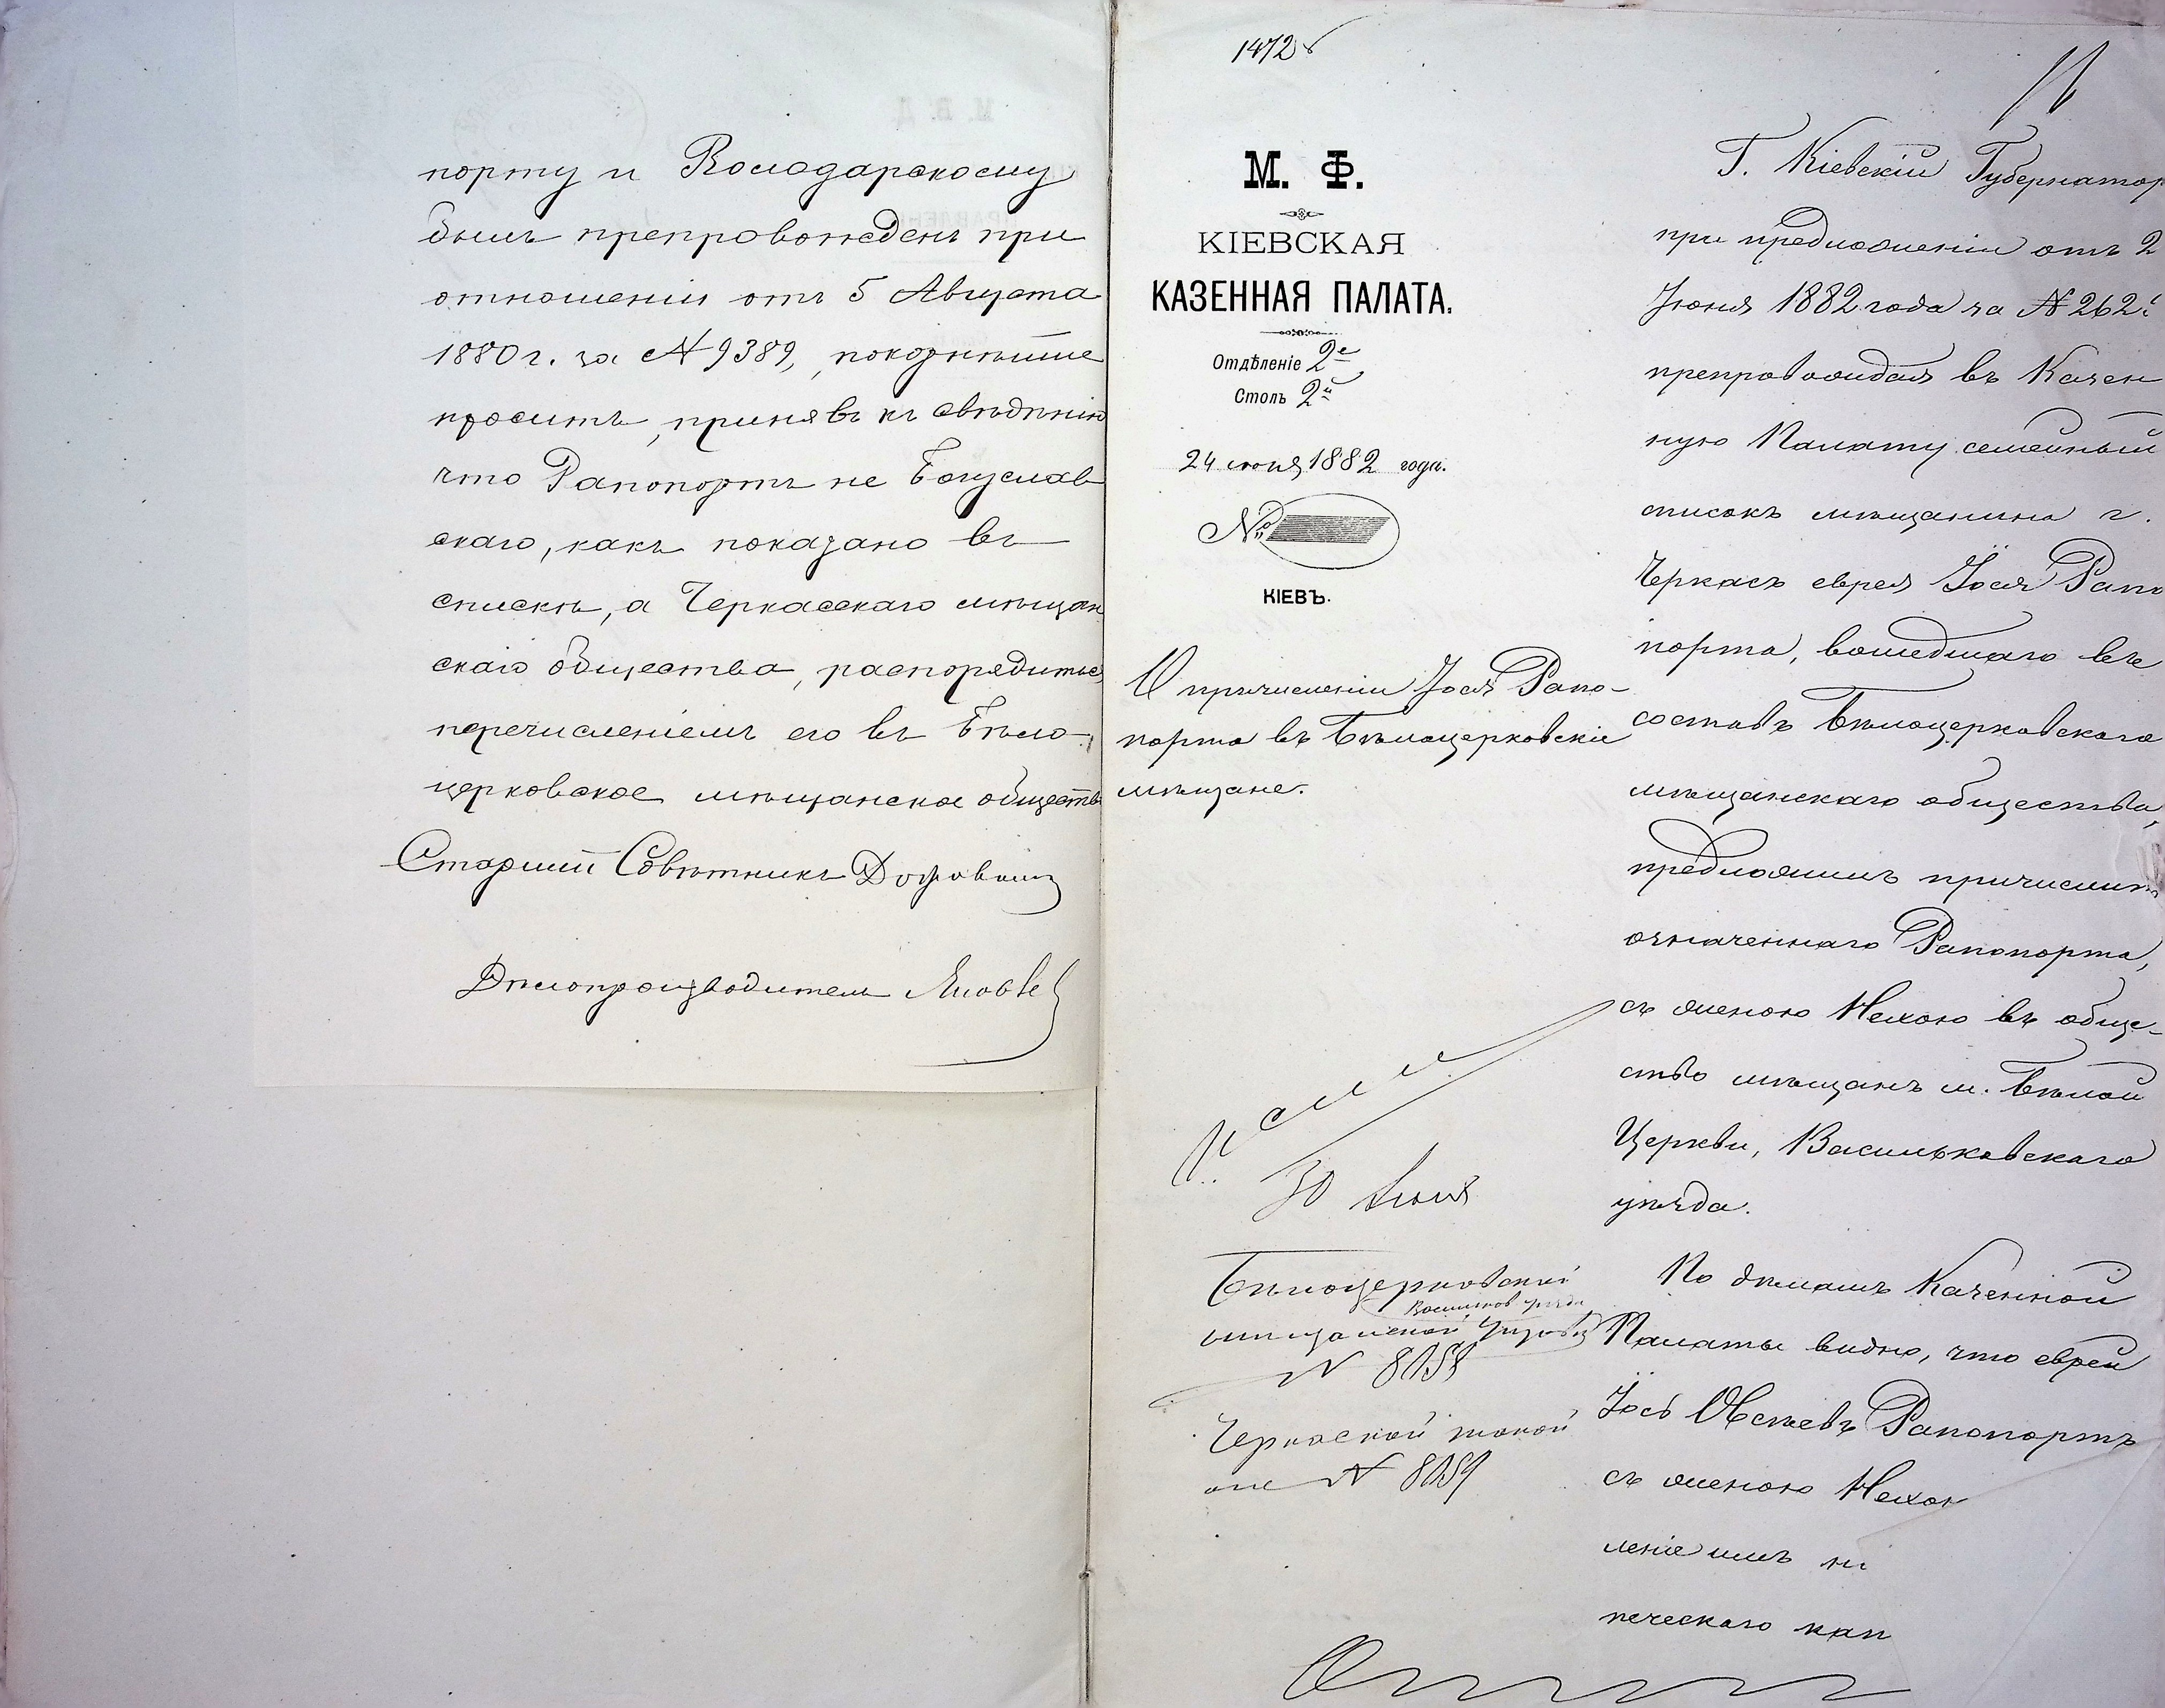 порту и Володарскому
былъ препровожденъ при
отношеніи отъ 5 Августа
1880 г. за № 9389, покорнѣйше
проситъ, принявъ къ свѣдѣнію
что Рапопортъ не Богуслав
скаго, какъ показано въ
спискѣ, а Черкасскаго мѣщан
скаго общества, распорядиться
перечисленіемъ его въ Бѣло-
церковское мѣщанское общество
Старшій Совѣтникъ
Дѣлопроизводитель
1472
М. Ф.
КІЕВСКАЯ
КАЗЕННАЯ ПАЛАТА.
Отдѣленіе 2е
Столъ 2й
24 іюня 1882 года.
№
КІЕВЪ.
О причисленіи Іося Рапо-
порта въ Бѣлоцерковскіе
мѣщане.
30 Іюля
Бѣлоцерковской
Васильков. уѣзда
мѣщанской Управѣ
№ 8058
Черкаской такой
же № 8059
Г. Кіевскій Губернатор
при предложеніи отъ 2
Іюня 1882 года за № 262
препровождая въ Казен
ную Палату семейный
списокъ мѣщанина г.
Черкасъ еврея Іося Рапо
порта, вошедшаго въ
составъ Бѣлоцерковскаго
мѣщанскаго общества,
предложилъ причислить
означеннаго Рапопорта,
съ женою Нехою въ обще-
ство мѣщанъ м. Бѣлой
Церкви, Васильковскаго
уѣзда.
По дѣламъ Казенной
Палаты видно, что еврей
Іось Рапопортъ
съ женою Нехою
леніемъ
печескаго кап